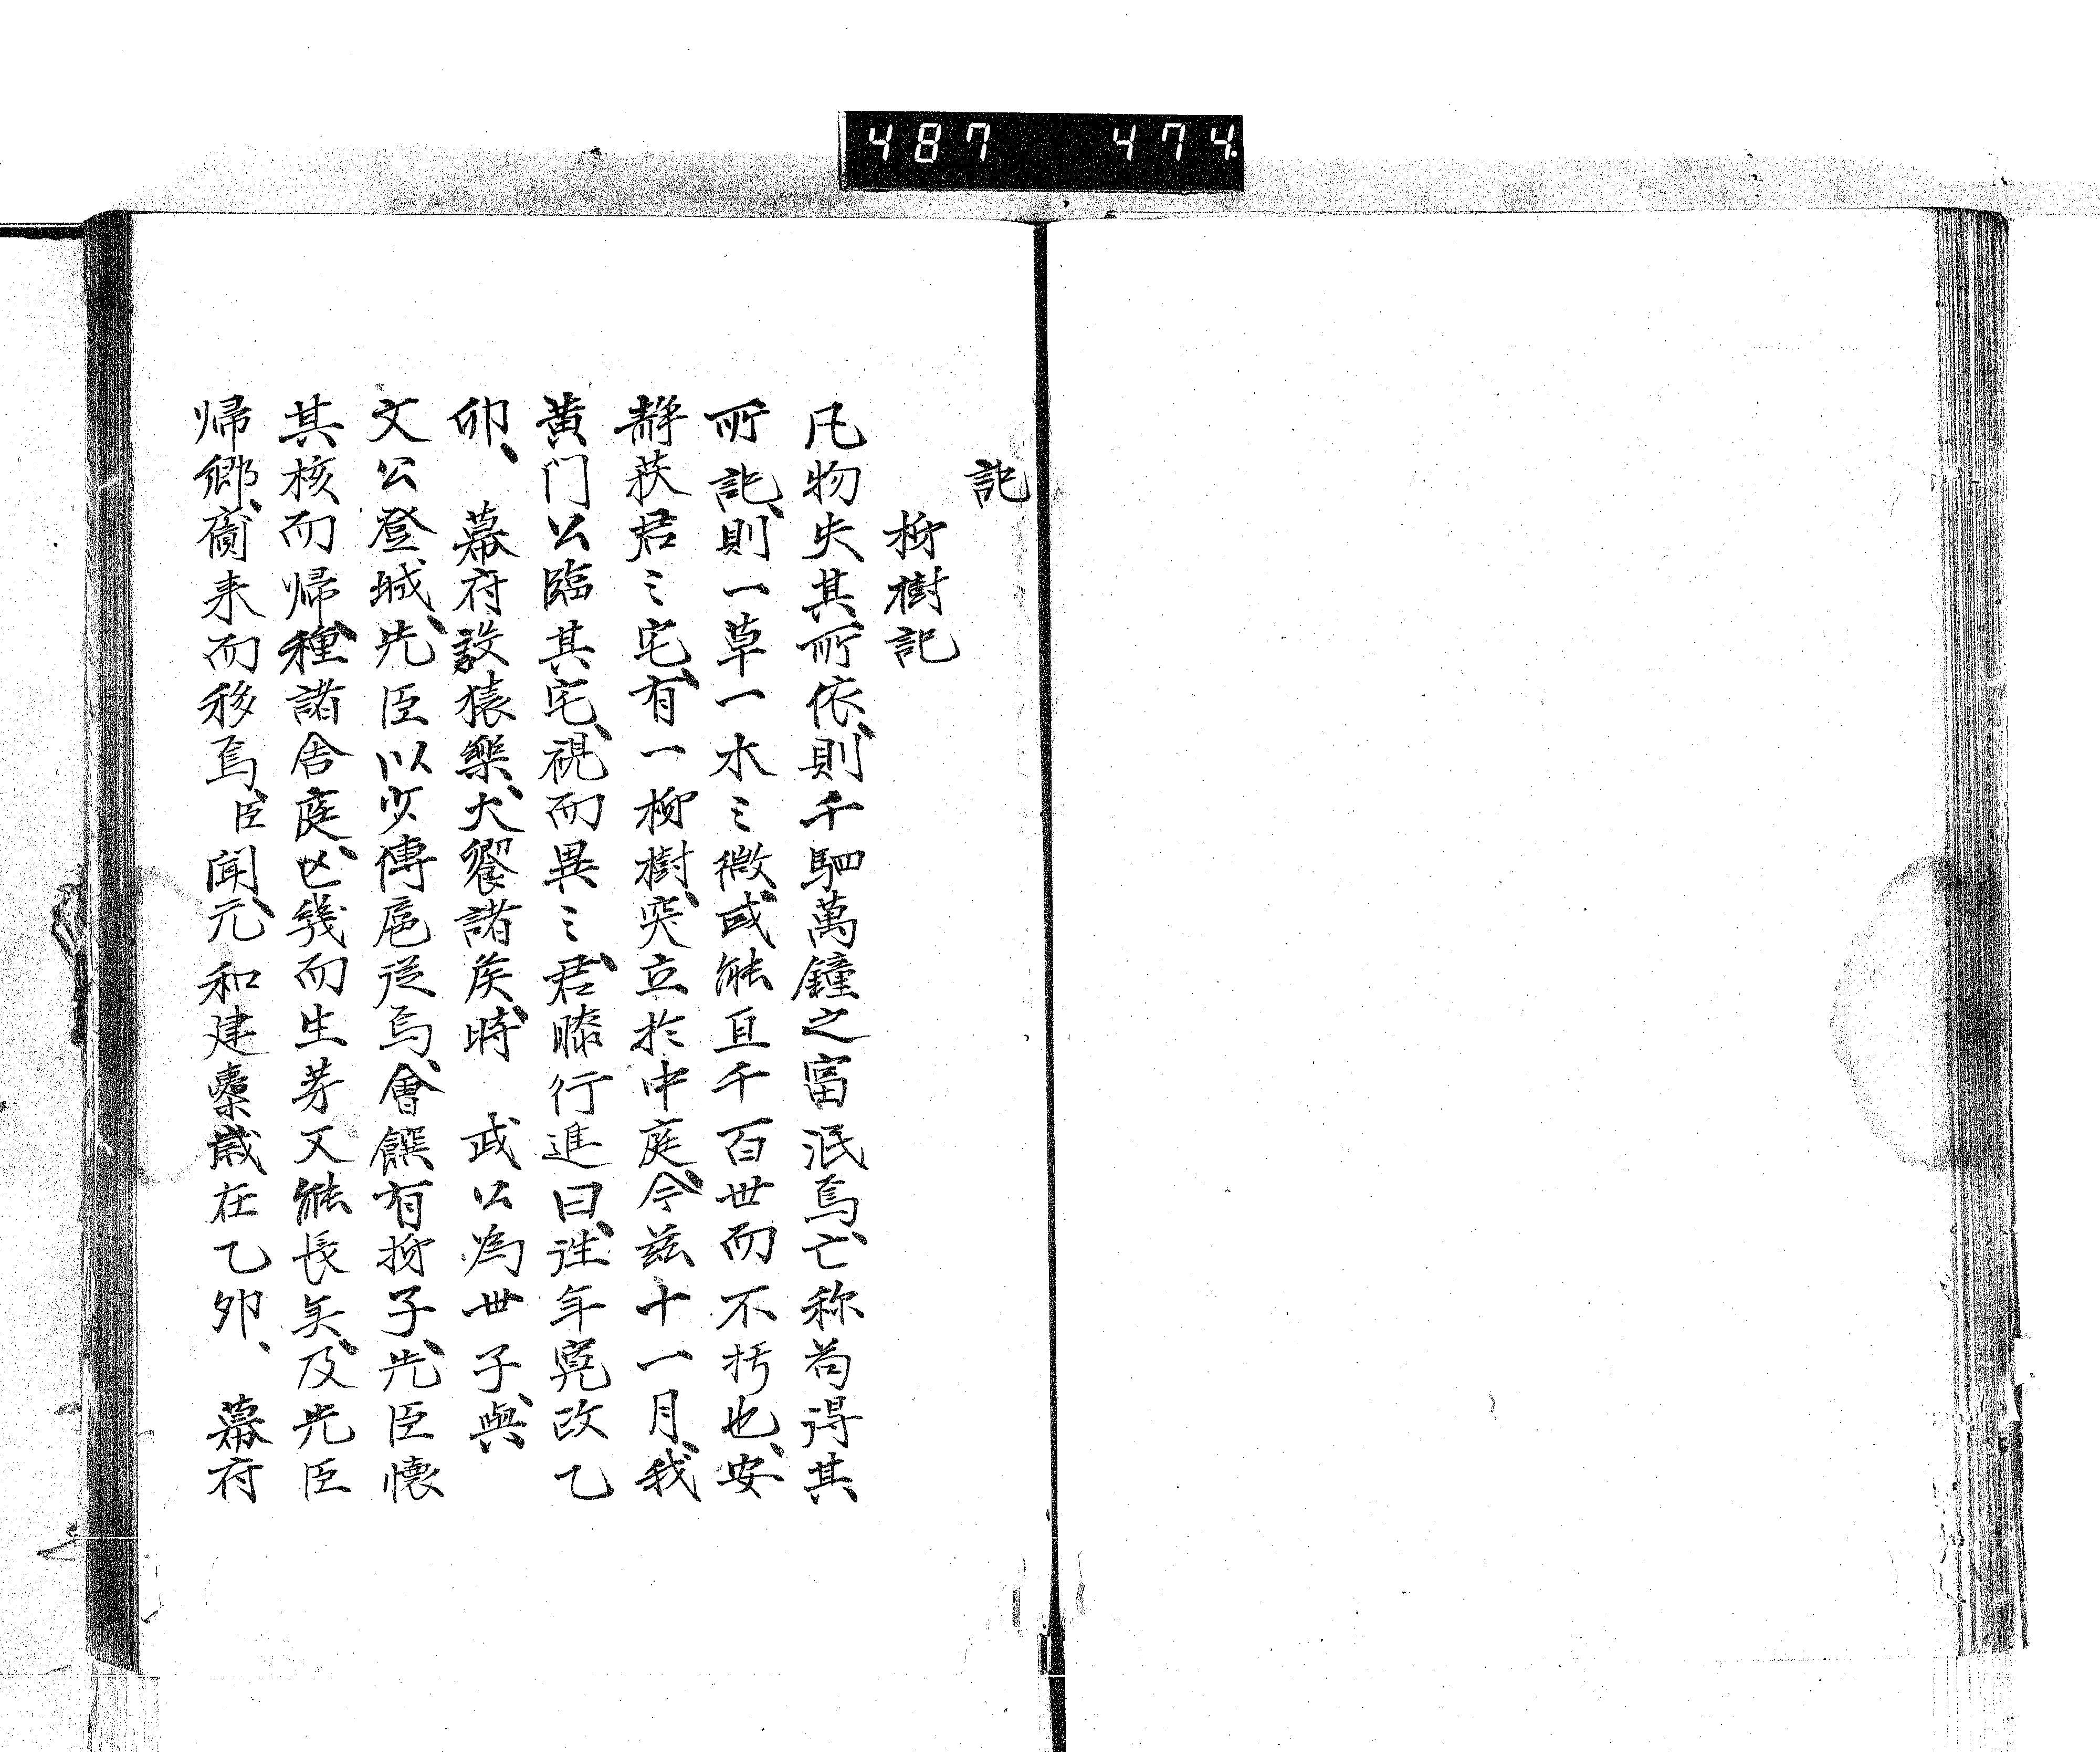 487 474
記
柳樹記
凡物失其所依、則千駟萬鐘之富泯焉、亡称苟得其
所託、則一草一木之微、或能亘千百世而不朽也、安
靜荻君之宅、有一柳樹、突立於中庭、今玆十一月、我
黄门公臨其宅、視而異之、君膝行進曰、徃年寛政乙
卯、 幕府設猿樂、大饗諸矦、時 武公為世子、與
文公登城、先臣以少傅扈從焉、會饌有柳子、先臣懐
其核而帰、種諸舎庭、亡幾而生芽又能長矣、及先臣
帰郷、賷来而移焉、臣聞、元和建櫜歳在乙卯、 幕府